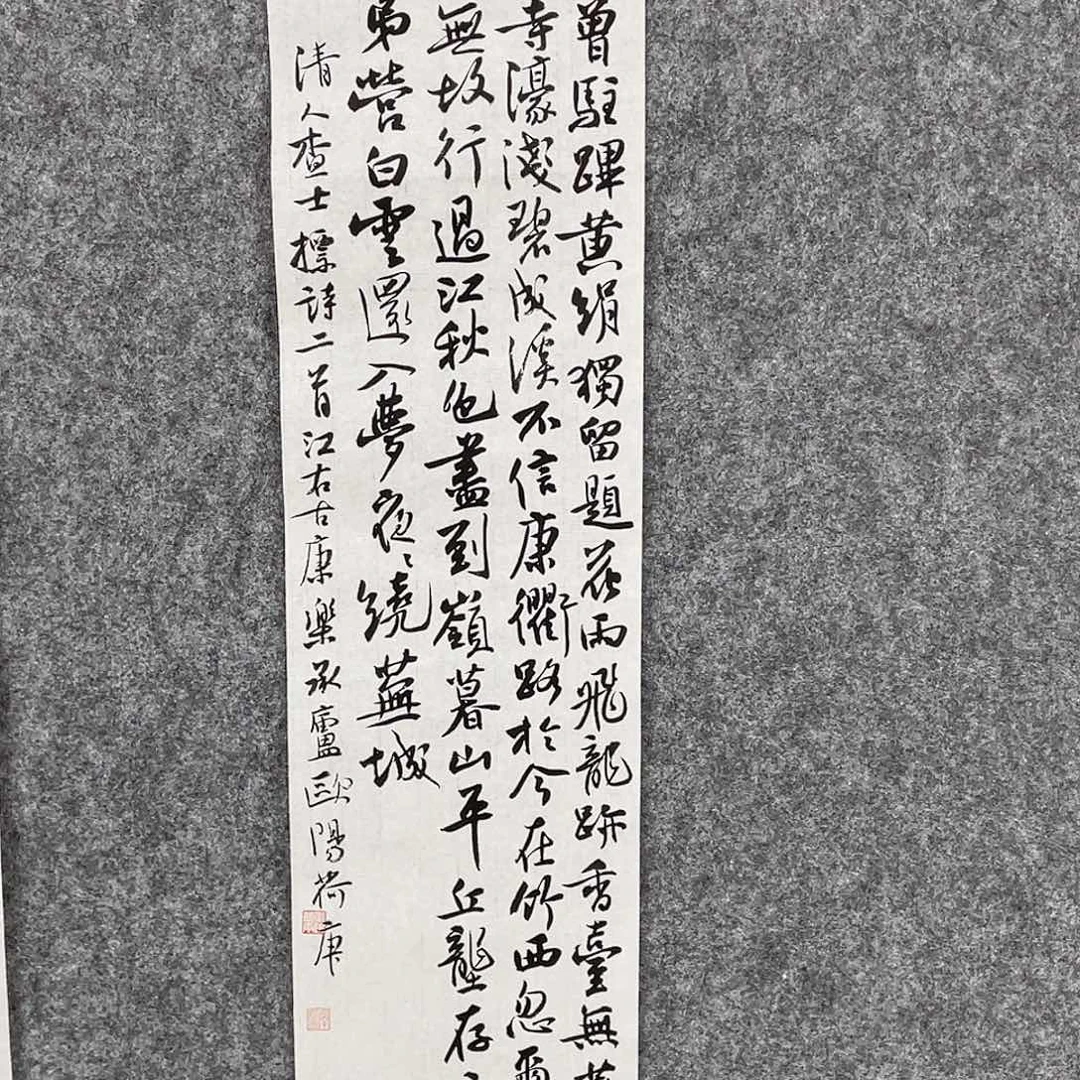 曾駐蹕黄絹獨留題花雨飛龍跡香臺無
寺濠淺碧成溪不信康衢路於今在竹西忽爾
無故行過江秋色盡到嶺暮山平丘壟存
弟營白雲還入夢夜〻繞蕪城
清人查士標詩二首江右古康樂承廬歐陽荷庚